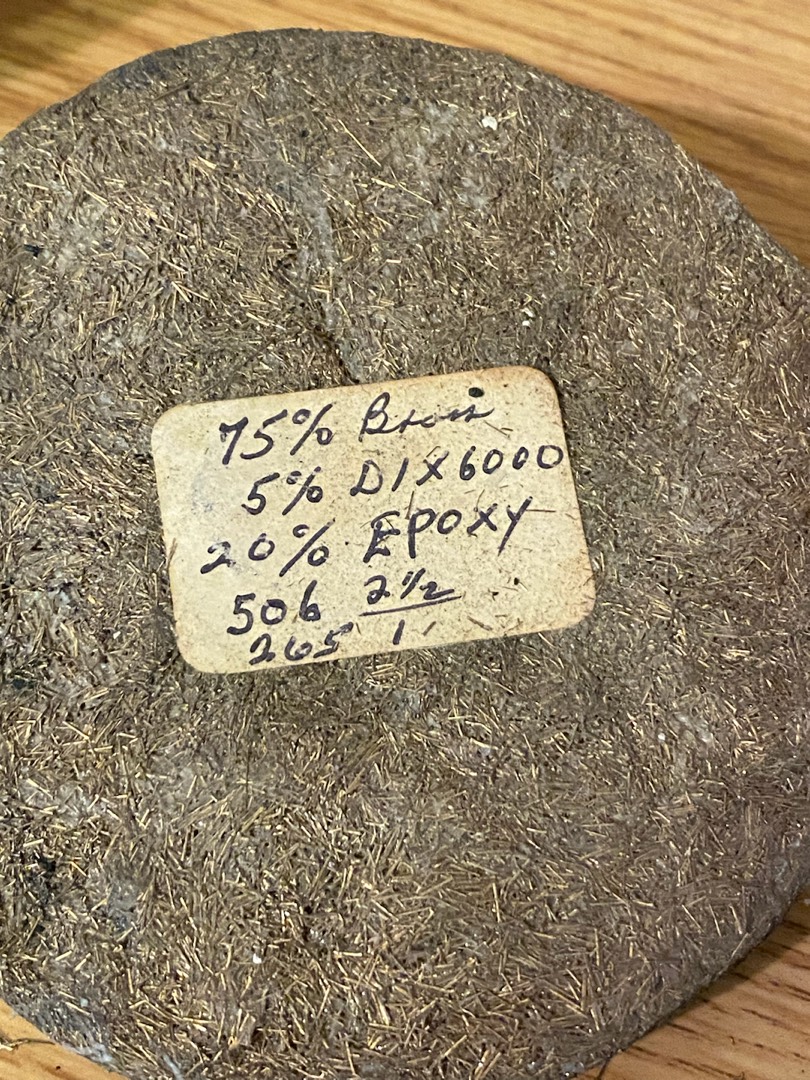 75% Brass
5% DIX6000
20% EPOXY
506 2 1/2
265 1